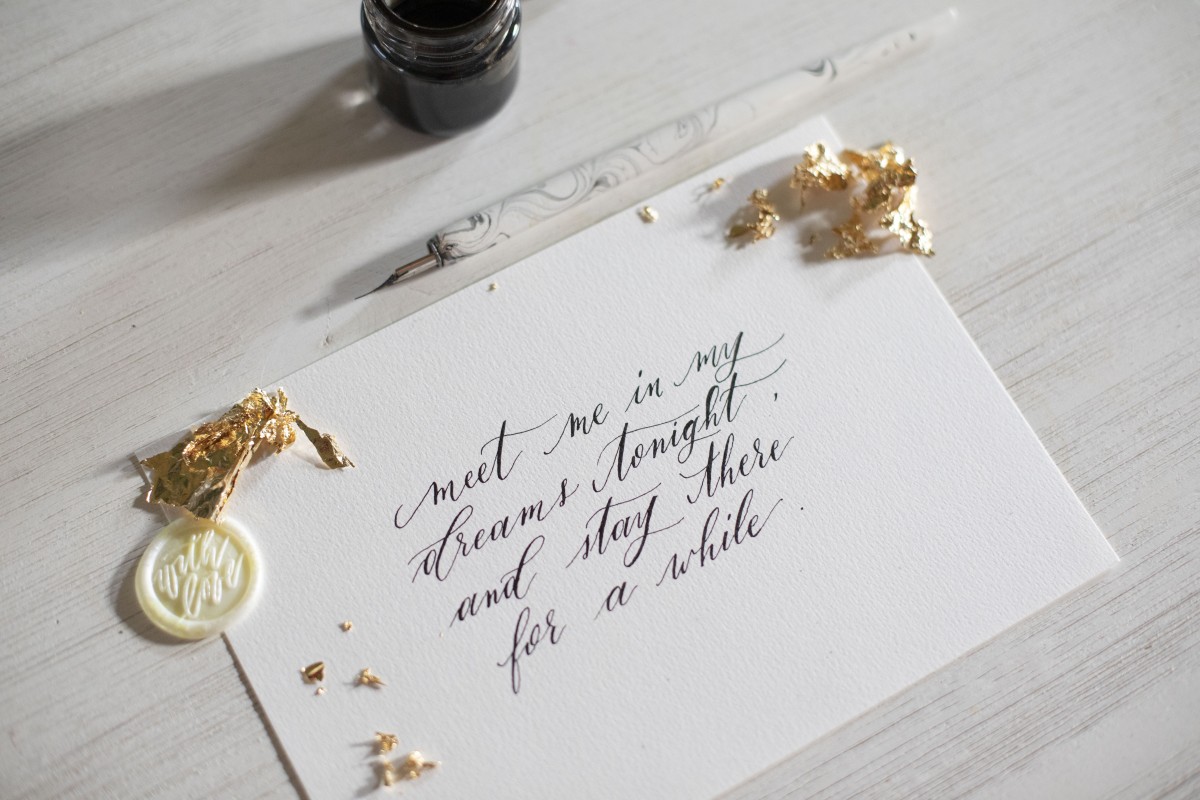 meet me in my
dreams tonight,
and stay there
for a while.
with
love